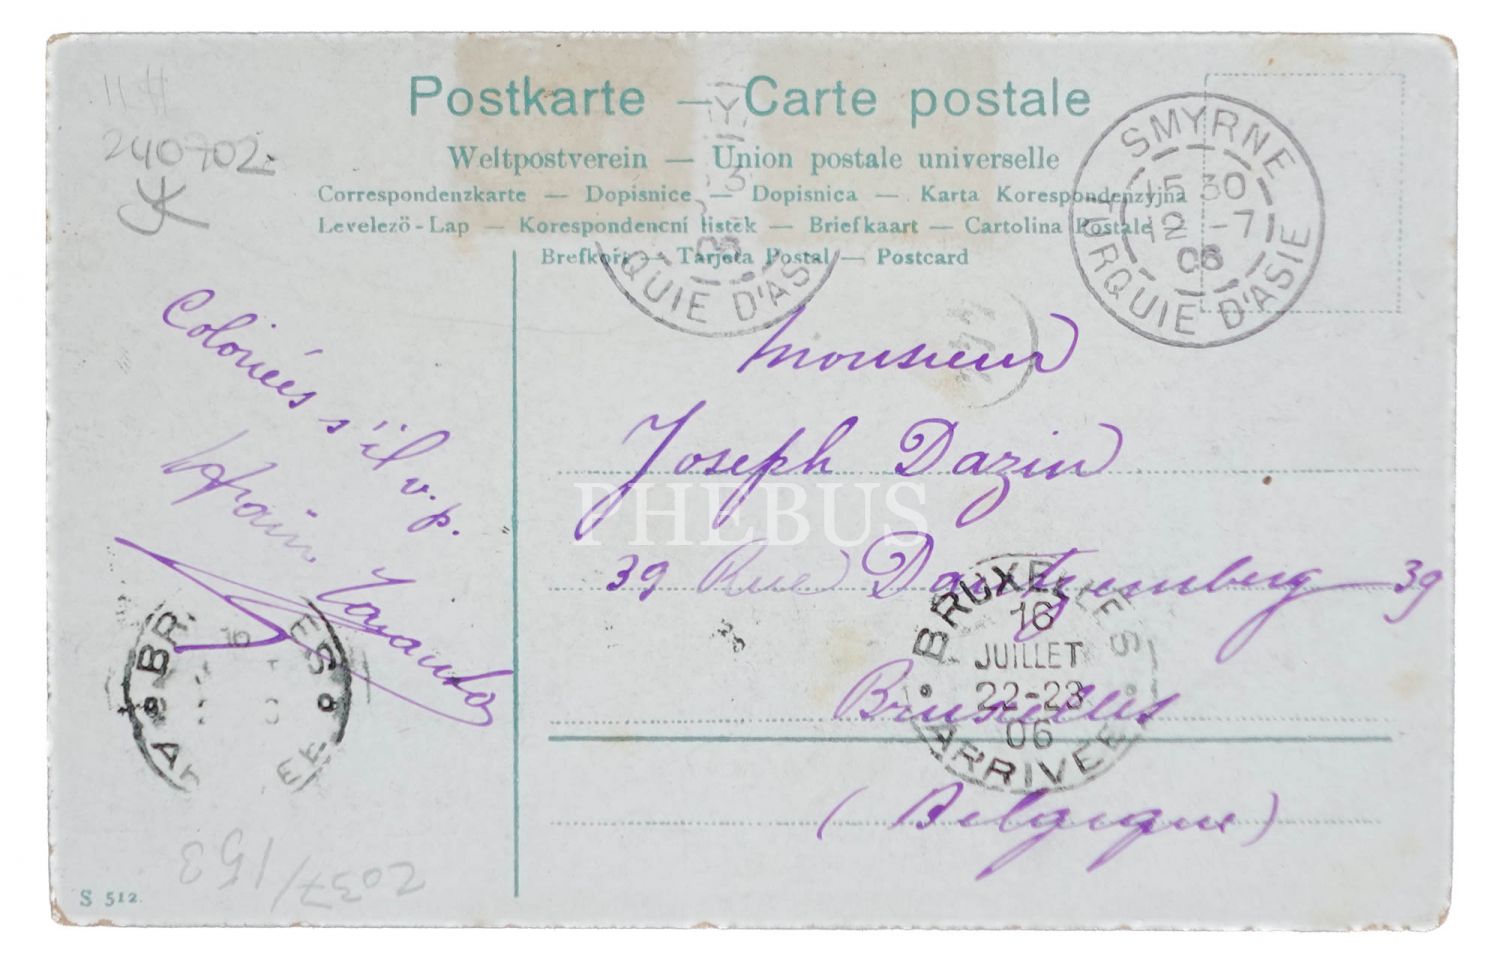 Postkarte — Carte postale
Weltpostverein — Union postale universelle
Correspondenzkarte — Dopisnice — Dopisnica — Karta Korespondenzyjna
Levelezö-Lap — Korespondencní listek — Briefkaart — Cartolina Postale
Brefkort — Tarjeta Postal — Postcard
240702
SMYRNE
15 30
12 -7
06
TURQUIE D'ASIE
06
QUIE D'AS
Coloriées s'il v. p.
Monsieur
Joseph Dazin
39 Rue Dautzemberg 39
Bruxelles
(Belgique)
BRUXELLES
16
JUILLET
22-23
06
ARRIVEE
BR ES
16
AR EE
PHEBUS
2037/153
S 512.